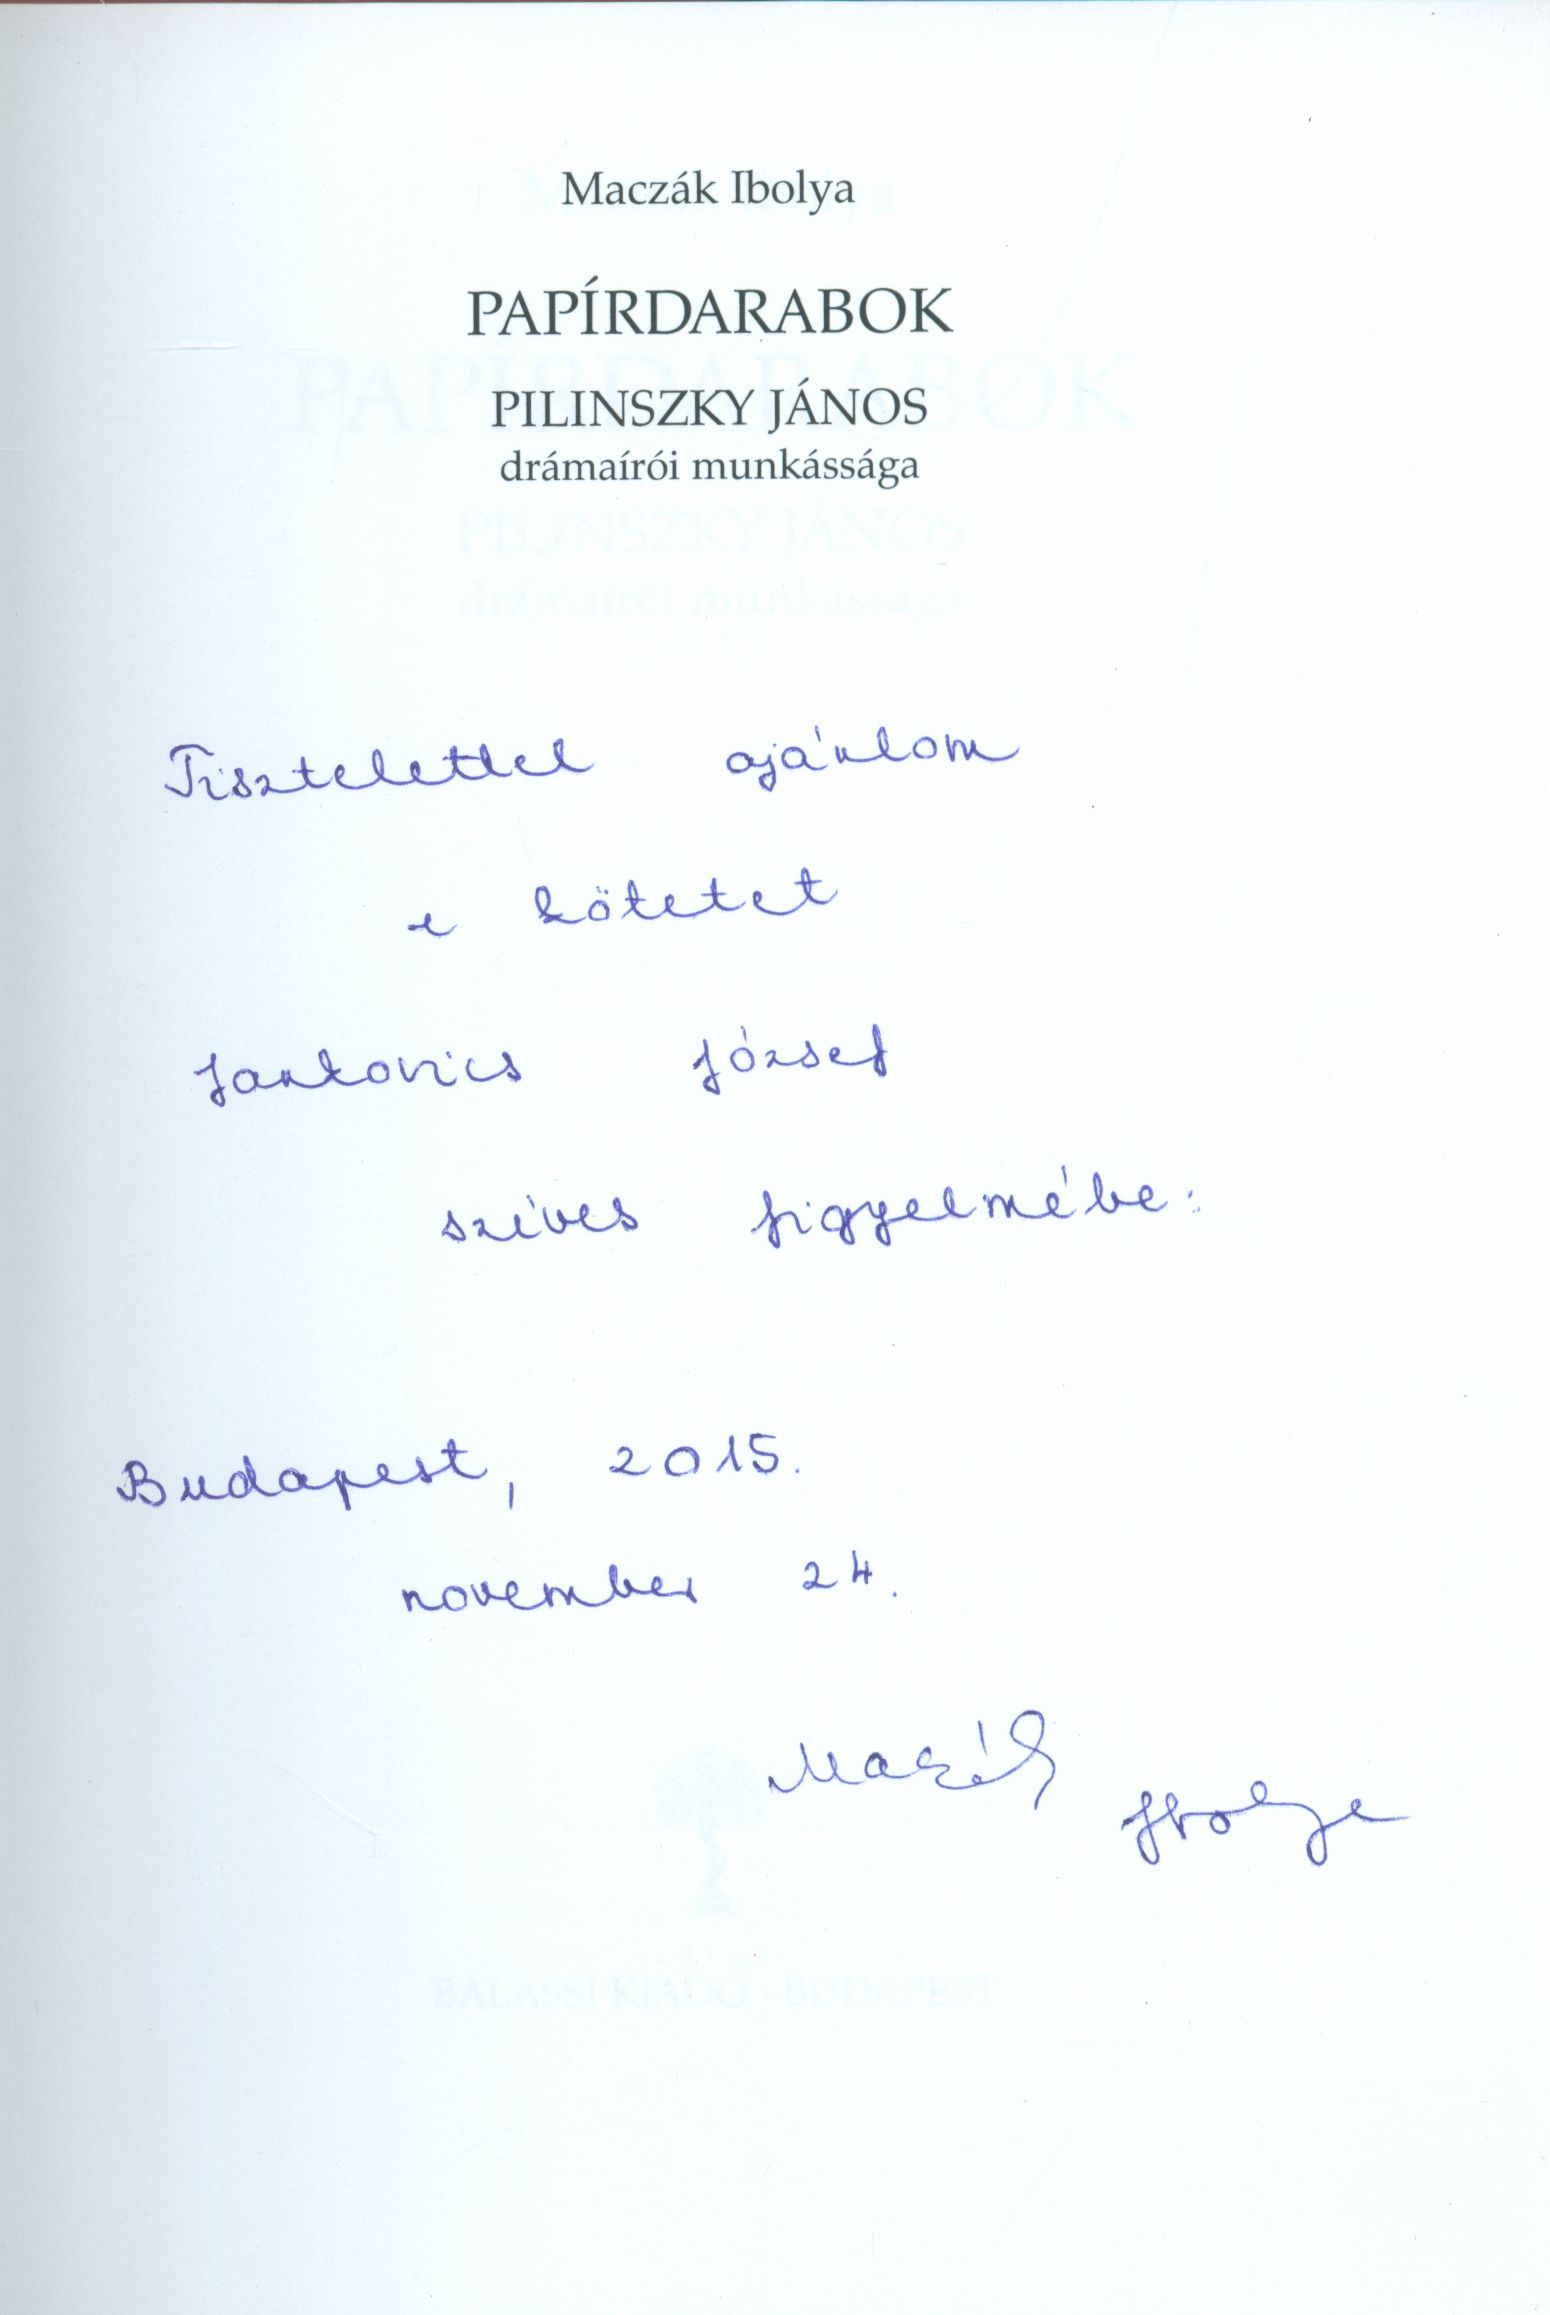 Maczák Ibolya
PAPÍRDARABOK
PILINSZKY JÁNOS
drámaírói munkássága
Tisztelettel ajánlom
e kötetet
Jankovics József
szíves figyelmébe:
Budapest, 2015.
november 24.
Maczák Ibolya
BALASSI KIADÓ · BUDAPEST